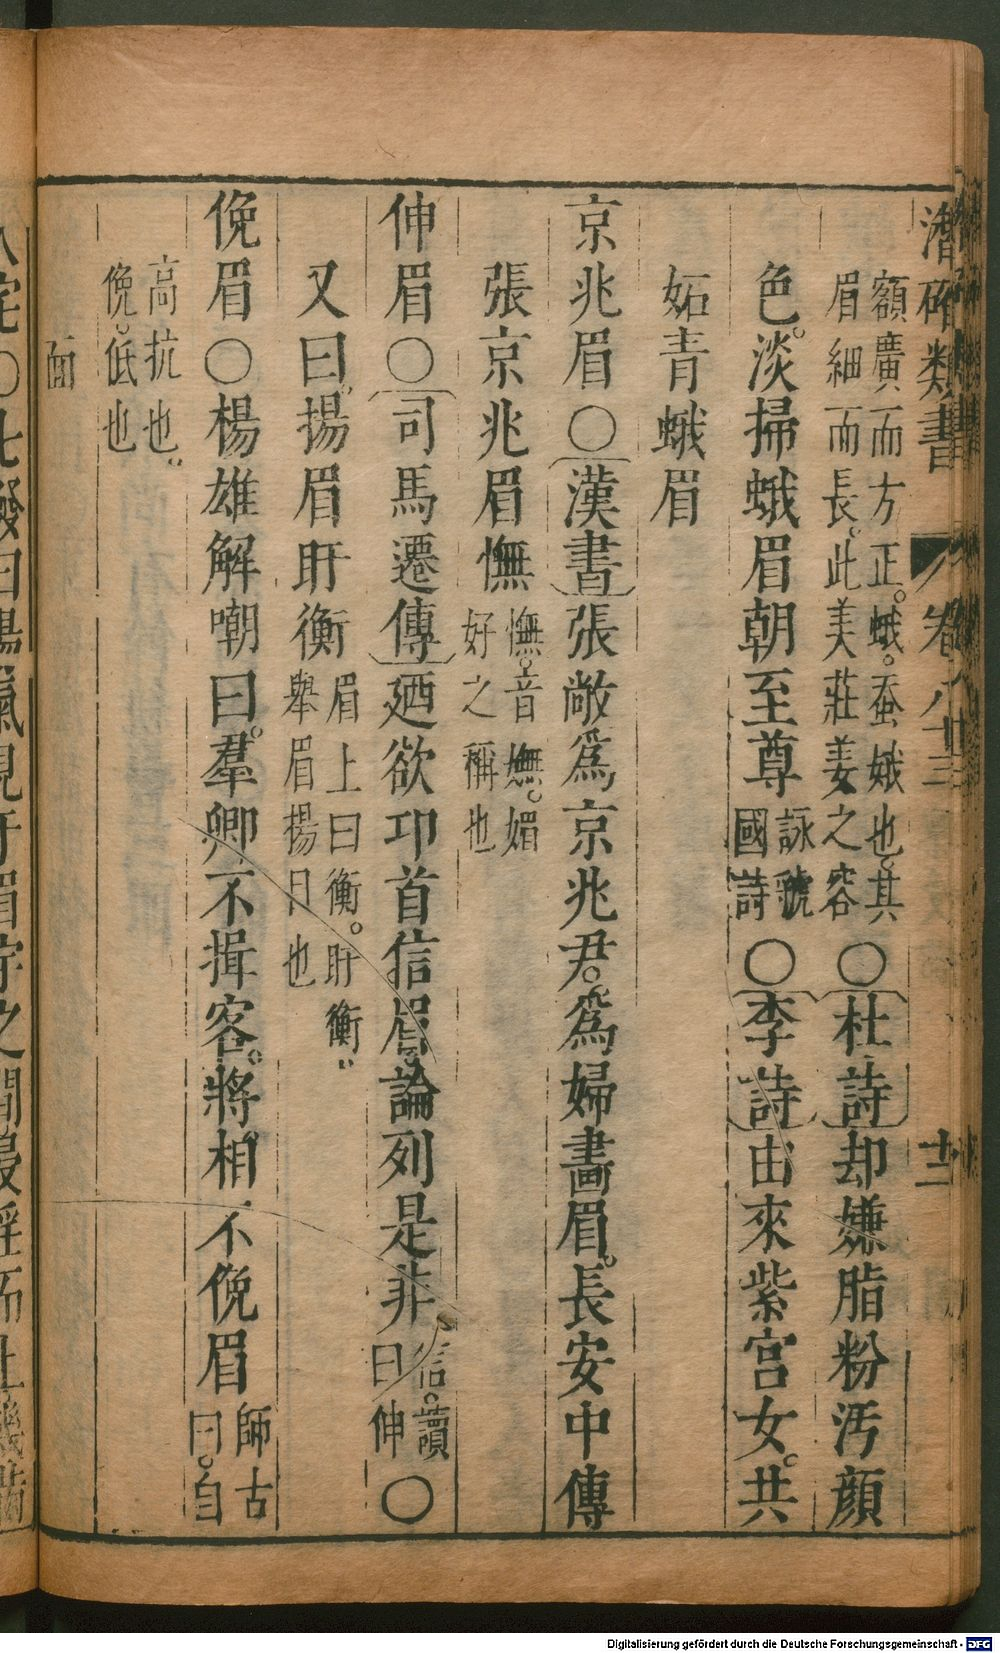 潛確類書 卷八十三 十二
額廣而方正。蛾。蚕蛾也。其
眉細而長。此美莊姜之容
〇杜詩却嫌脂粉汚顔
色。淡掃蛾眉朝至尊
詠虢
國詩
〇李詩由來紫宫女。共
妬青蛾眉
京兆眉〇漢書張敞爲京兆君。爲婦畫眉。長安中傳
張京兆眉憮
憮。音嫵。媚
好之稱也
伸眉〇司馬遷傳廼欲卬首信眉。論列是非
信。讀
曰伸
〇
又曰。揚眉盱衡
眉上曰衡。盱衡
舉眉揚目也
俛眉〇楊雄解嘲曰。羣卿不揖客。將相不俛眉
師古
曰。自
高抗也
俛。低也
面
曰陽氣見于眉宇之間
Digitalisierung gefördert durch die Deutsche Forschungsgemeinschaft - DFG